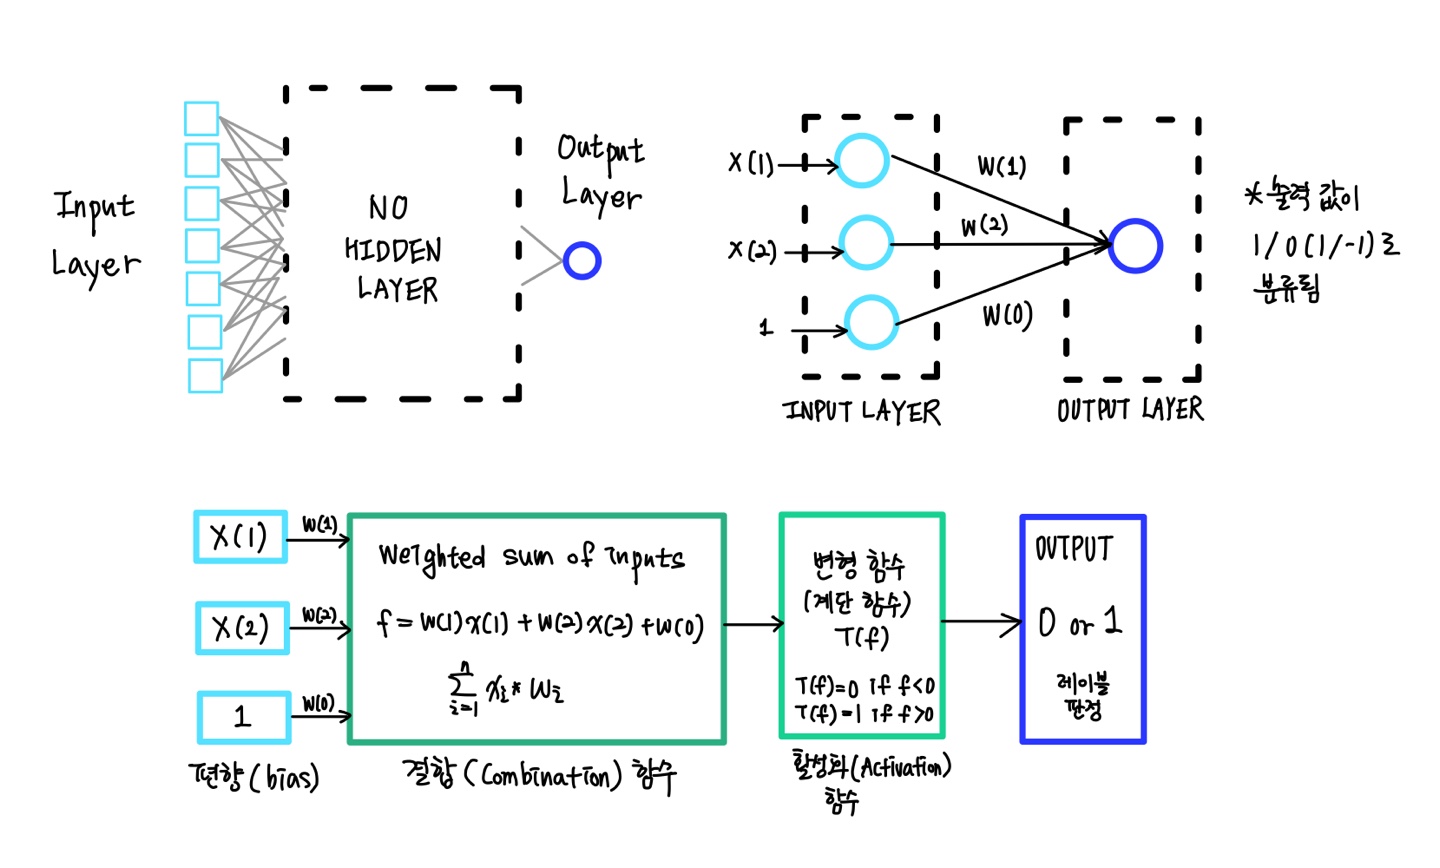 Input
Layer
NO
HIDDEN
LAYER
Output
Layer
X(1)
X(2)
1
W(1)
W(2)
W(0)
INPUT LAYER
OUTPUT LAYER
*출력 값이
1/0(1/-1)로
분류됨
X(1)
W(1)
X(2)
W(2)
1
W(0)
편향(bias)
Weighted sum of inputs
f=W(1)X(1)+W(2)X(2)+W(0)
n
∑ xi * wi
i=1
결합(Combination) 함수
변형 함수
(계단 함수)
T(f)
T(f)=0 if f<0
T(f)=1 if f>0
활성화(Activation)
함수
OUTPUT
0 or 1
레이블
판정